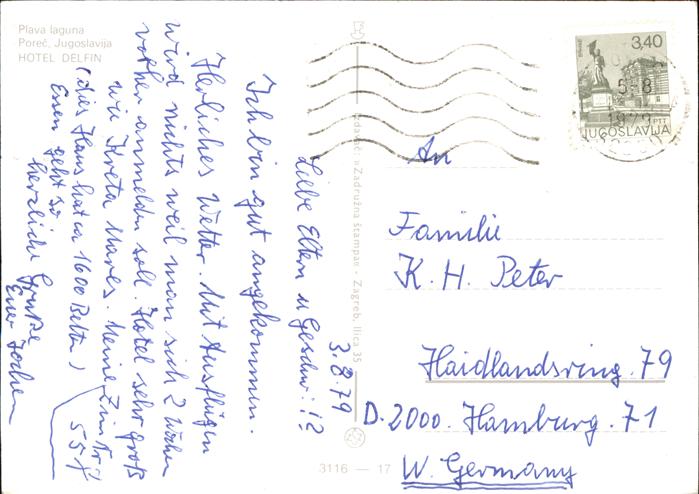 Plava laguna
Poreč, Jugoslavija
HOTEL DELFIN
3.8.79
Liebe Eltern u Geschwi!?
Ich bin gut angekommen.
Herliches Wetter. Mit Ausflügen
wird nichts weil man sich 2 Wochen
vorher anmelden soll. Hotel sehr groß
wie Kreta Mares. Meine Zim Nr
557
(dies Haus hat ca 1600 Betten)
Essen geht so
herzliche Grüße
Euer Jochen
Izdavač: »Zadružna štampa« - Zagreb, Ilica 35
3116 — 17
3,40
PTT
JUGOSLAVIJA
5.-8
1979
An
Familie
K. H. Peter
Haidlandsring. 79
D. 2000. Hamburg. 71
W. Germany